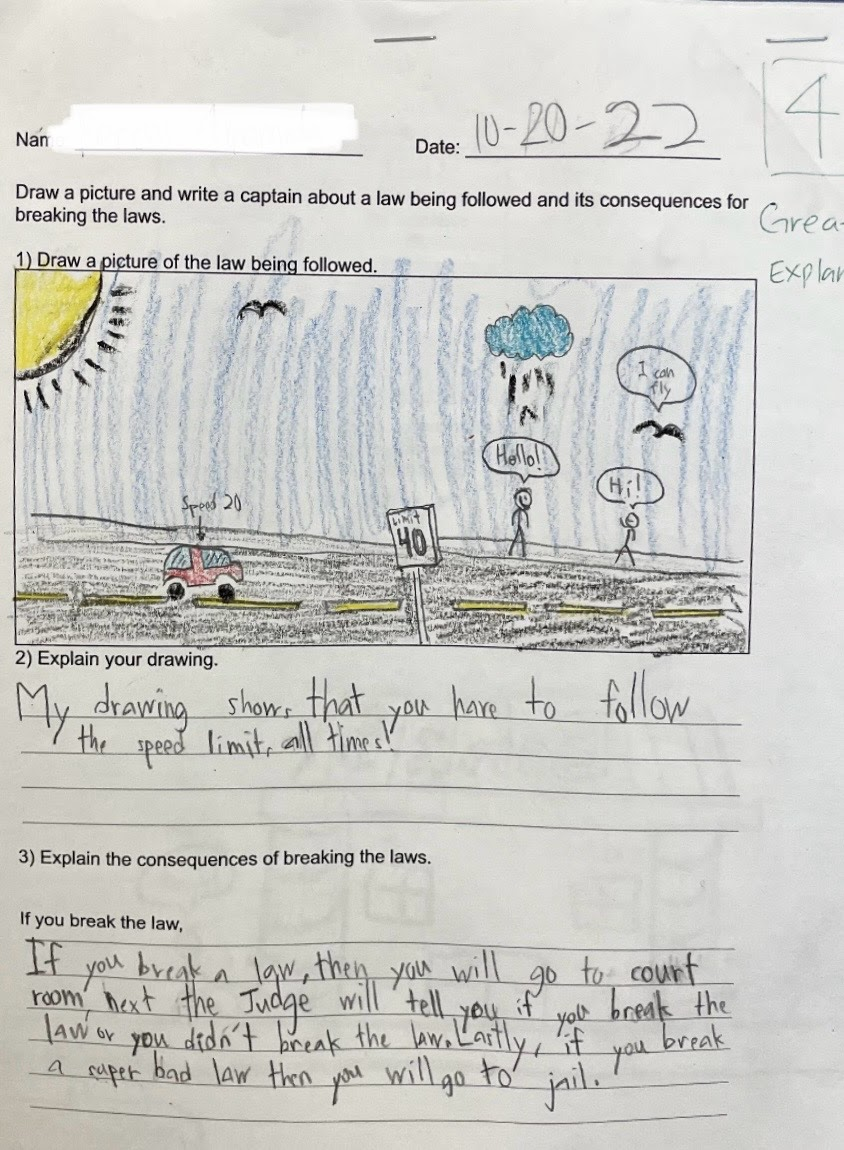 Nam
Date: 10-20-22
4
Draw a picture and write a captain about a law being followed and its consequences for
breaking the laws.
Grea
Explan
1) Draw a picture of the law being followed.
I can
fly
Hello!
Hi!
Speed 20
Limit
40
2) Explain your drawing.
My drawing shows that you have to follow
the speed limit, all times!
3) Explain the consequences of breaking the laws.
If you break the law,
If you break a law, then you will go to court
room, next the Judge will tell you if you break the
law or you didn't break the law. Lastly, if you break
a super bad law then you will go to jail.